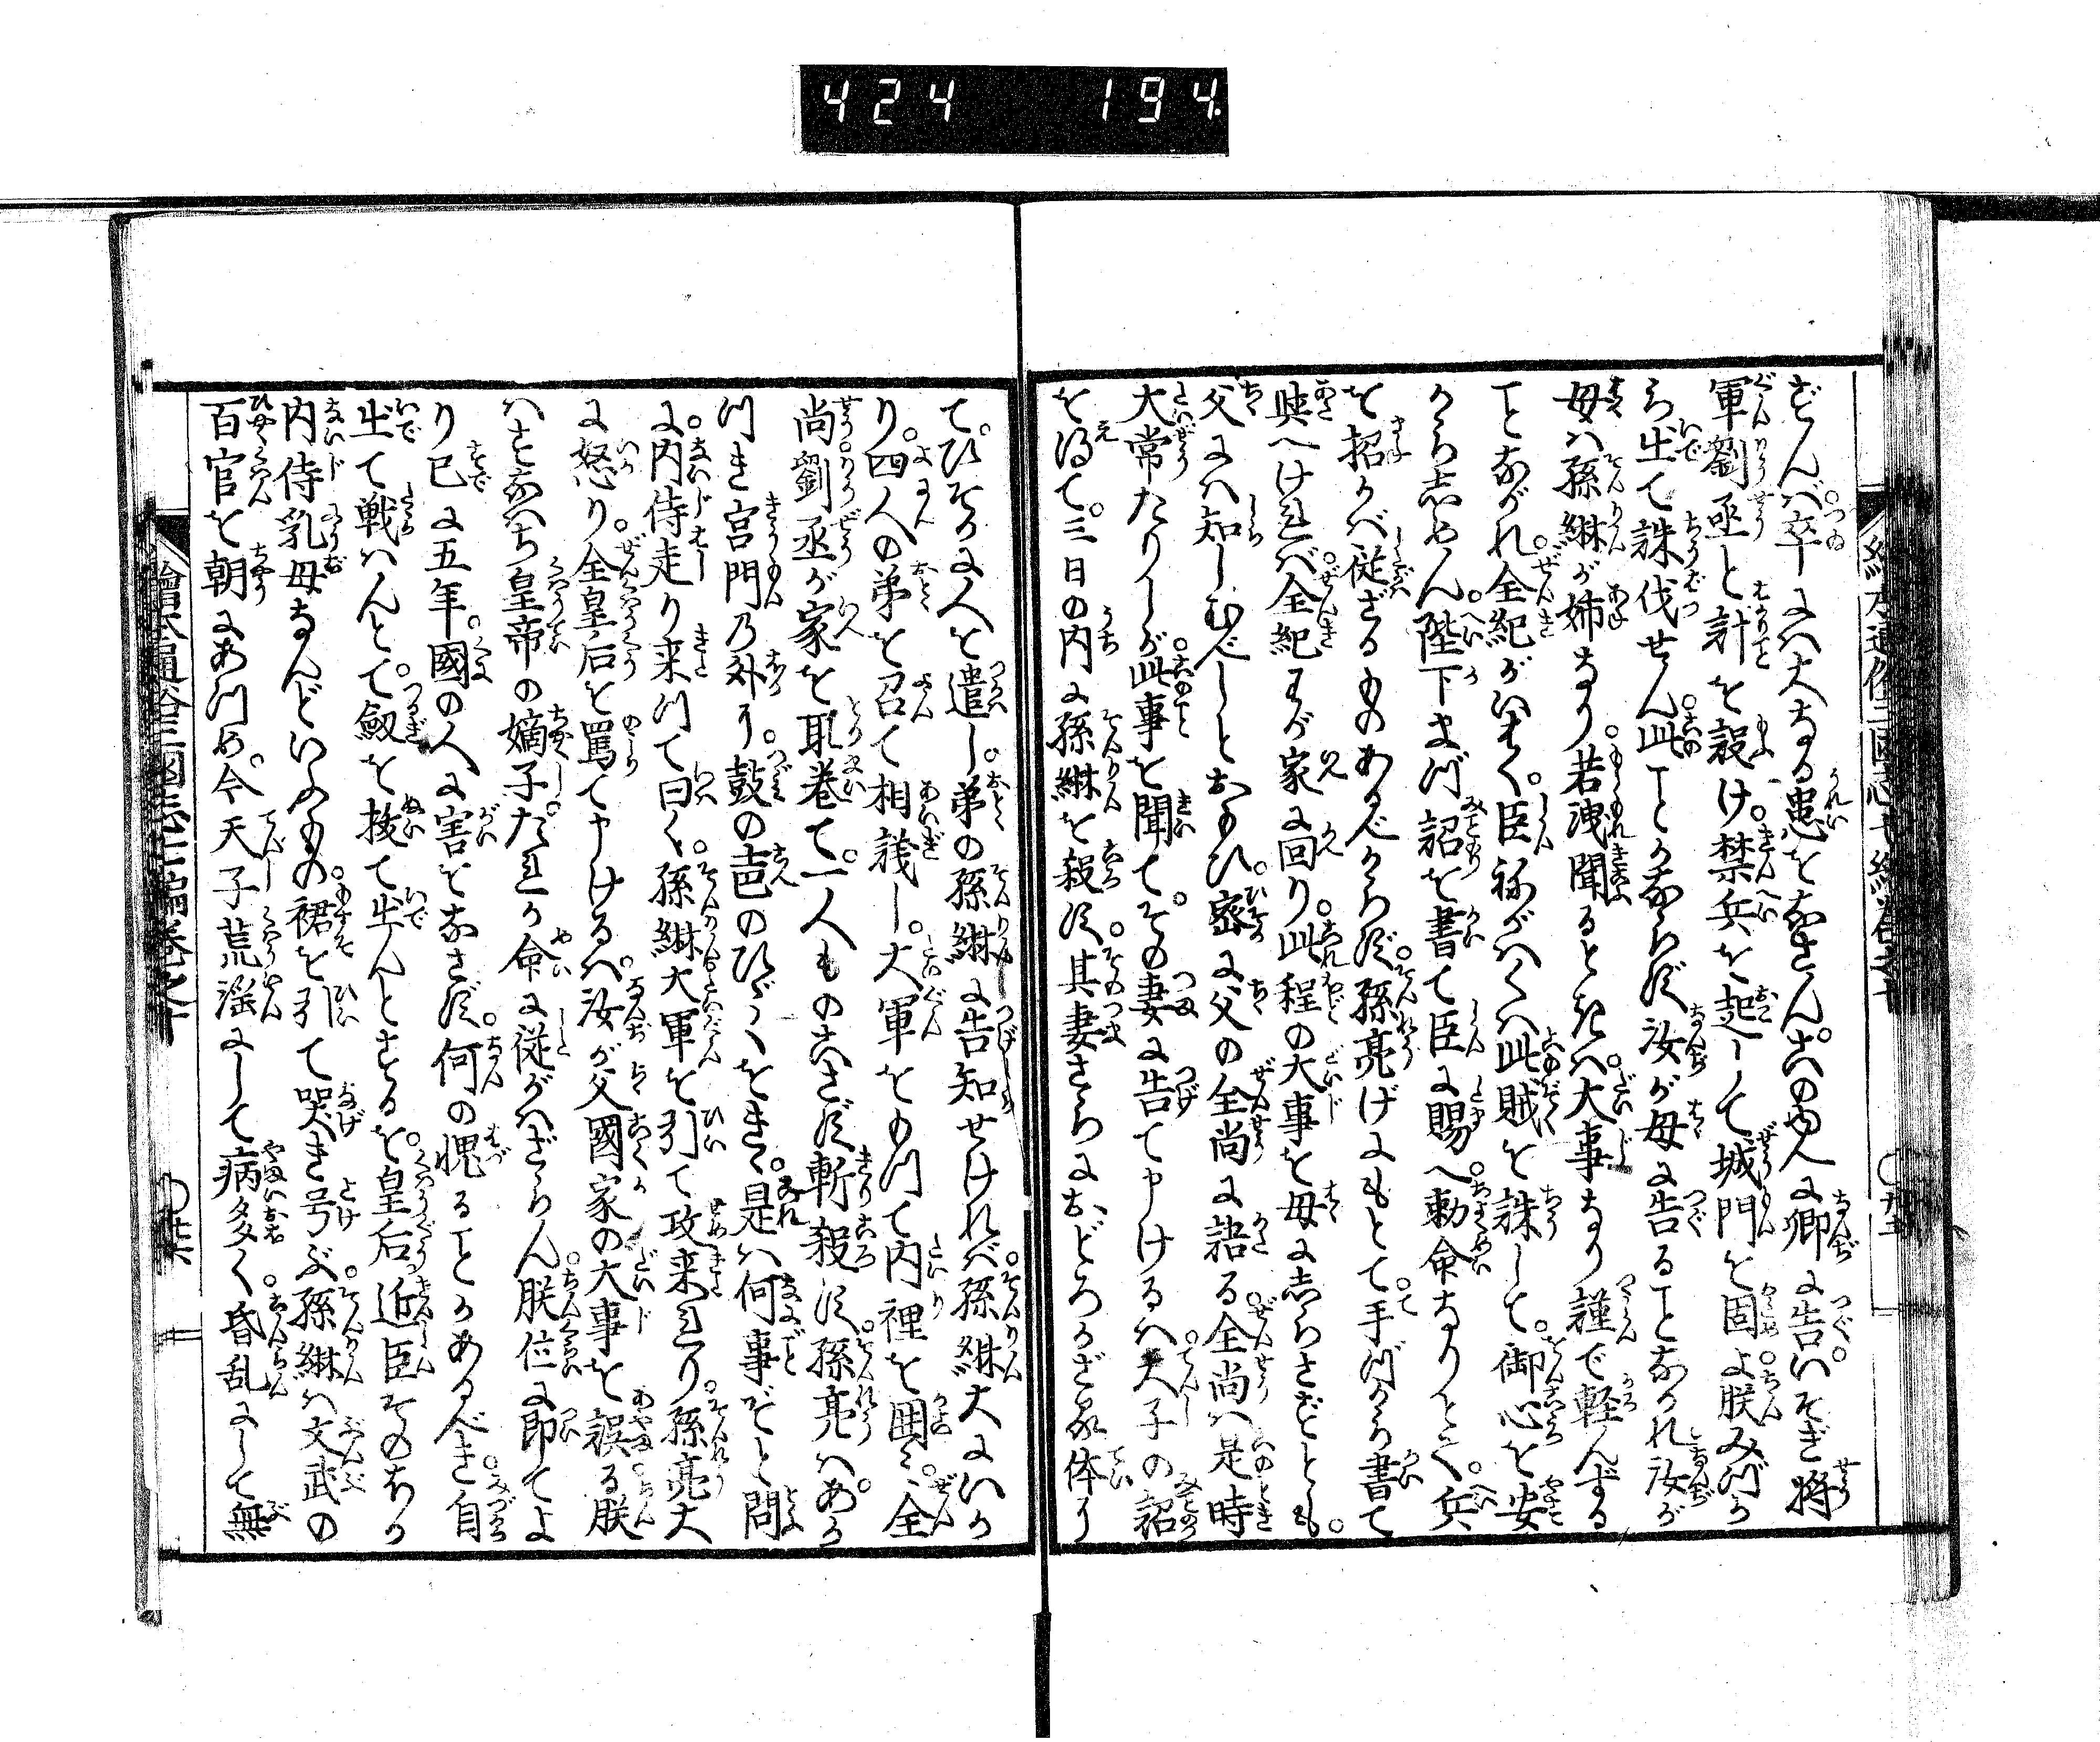 424 194
ざんバ卒に八大なる患をなさんこのゆへに卿に告いそぎ将
軍劉丞と計を設け禁兵を起して城門を固よ朕みづか
ら出て誅伐せん此ことかならず汝が母に告ることなかれ汝が
母ハ孫綝が姉なり若洩聞るときハ大事なり謹で軽んずる
ことなかれ全紀がいはく臣ねがハくハ此賊を誅して御心を安
からしめん陛下まづ詔を書て臣に賜へ勅命なりとて兵
を招かバ従ざるものあるべからず孫亮げにもとて手づから書て
與へけれバ全紀わが家に回り此程の大事を母にしらさずとも
父にハ知しむべしとおもひ密に父の全尚に語る全尚ハ是時
大常たりしが此事を聞てその妻に告て申けるハ天子の詔
を得て三日の内に孫綝を殺す其妻さらにおどろかざる体にて
ひそかに人を遣し弟の孫綝に告知せけれバ孫綝大にいか
り四人の弟を召て相議し大軍をもつて内裡を囲ミ全
尚劉丞が家を取巻て一人ものこさず斬殺す孫亮ハあか
つき宮門乃外に鼓の音のひゞくをきゝ是ハ何事ぞと問
に内侍走り来つて曰く孫綝大軍を引て攻来れり孫亮大
に怒り全皇后を罵て申けるハ汝が父國家の大事を誤る朕
ハすなハち皇帝の嫡子たれか命に従がハざらん朕位に即てよ
り已に五年國の人に害をなさず何の愧ることかあるべき自
出て戦ハんとて劔を抜て出んとするを皇后近臣そのほか
内侍乳母なんどいふもの裙を引て哭き号ぶ孫綝ハ文武の
百官を朝にあつめ今天子荒淫にして病多く昏乱にして無
繪本通俗三國志七編巻之十